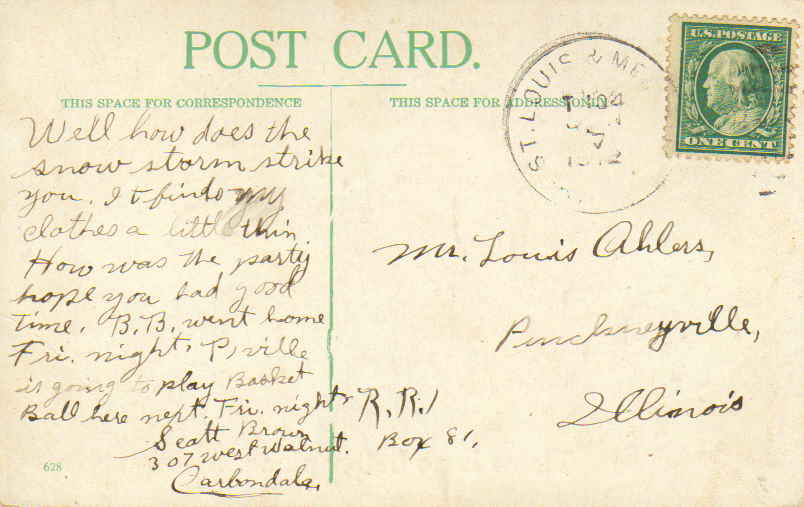 POST CARD.
THIS SPACE FOR CORRESPONDENCE
THIS SPACE FOR ADDRESS ONLY
ST. LOUIS & MEM
1912
U.S. POSTAGE
ONE CENT
Well how does the
snow storm strike
you. It finds my
clothes a little thin
How was the party
hope you had good
time. B.B. went home
Fri. night. P,ville
is going to play Basket
Ball here next. Fri. night
Scott Brown
307 west Walnut.
Carbondale,
Mr. Louis Ahlers,
Pinckneyville,
Illinois
R.R.1
Box 81.
628